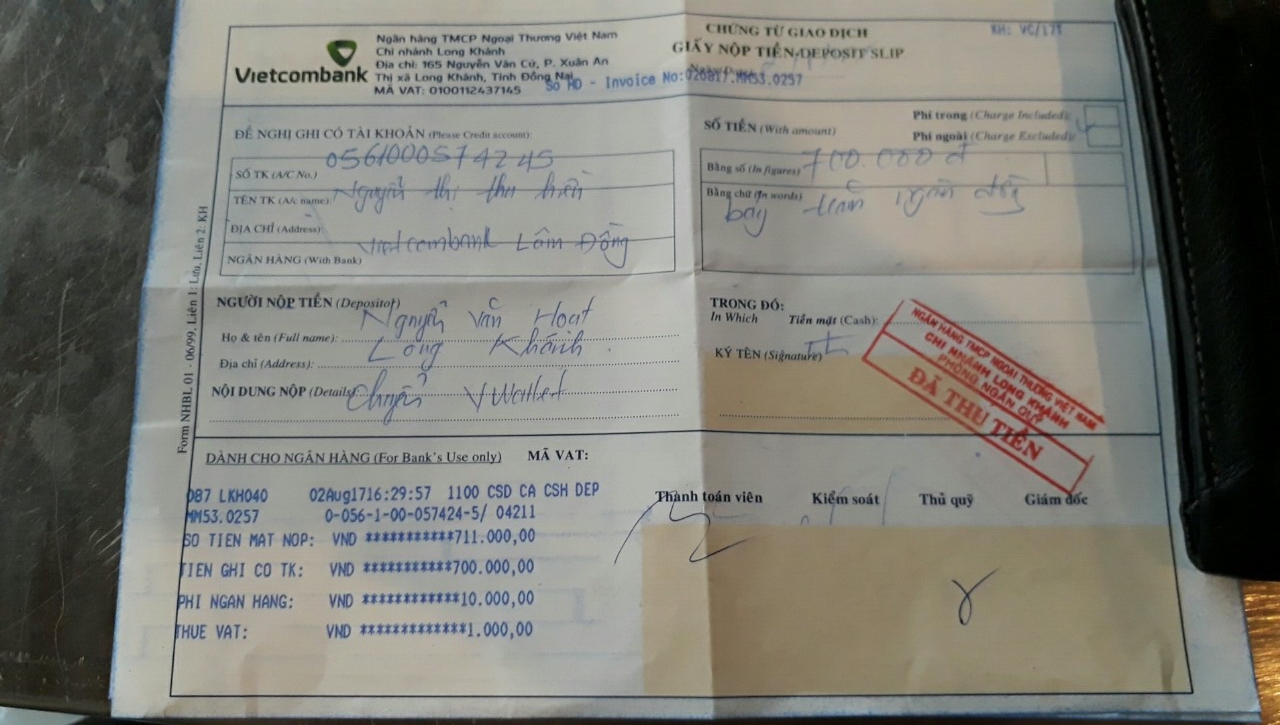 Vietcombank
Ngân hàng TMCP Ngoại Thương Việt Nam
Chi nhánh Long Khánh
Địa chỉ: 165 Nguyễn Văn Cừ, P. Xuân An
Thị xã Long Khánh, Tỉnh Đồng Nai
MÃ VAT: 0100112437145
CHỨNG TỪ GIAO DỊCH
GIẤY NỘP TIỀN/DEPOSIT SLIP
KH: VC/17T
So HD - Invoice No:020817.MM53.0257
ĐỀ NGHỊ GHI CÓ TÀI KHOẢN (Please Credit account):
SỐ TK (A/C No.) 0561000574245
TÊN TK (A/c name): Nguyễn thị thu hiền
ĐỊA CHỈ (Address):
NGÂN HÀNG (With Bank) Vietcombank Lâm Đồng
SỐ TIỀN (With amount)
Phí trong (Charge Included)
Phí ngoài (Charge Excluded)
Bằng số (In figures) 700.000 đ
Bằng chữ (In words) bảy trăm ngàn đồng
NGƯỜI NỘP TIỀN (Depositor)
Họ & tên (Full name): Nguyễn Văn Hoạt
Địa chỉ (Address): Long Khánh
NỘI DUNG NỘP (Details) Chuyển VWallet
TRONG ĐÓ:
In Which Tiền mặt (Cash):
KÝ TÊN (Signature)
NGÂN HÀNG TMCP NGOẠI THƯƠNG VIỆT NAM
CHI NHÁNH LONG KHÁNH
PHÒNG NGÂN QUỸ
ĐÃ THU TIỀN
Form NHBL 01 - 06/99, Liên 1: Lưu, Liên 2: KH
DÀNH CHO NGÂN HÀNG (For Bank's Use only) MÃ VAT:
087 LKH040 02Aug1716:29:57 1100 CSD CA CSH DEP
MM53.0257 0-056-1-00-057424-5/ 04211
SO TIEN MAT NOP: VND ***********711.000,00
TIEN GHI CO TK: VND ***********700.000,00
PHI NGAN HANG: VND ************10.000,00
THUE VAT: VND *************1.000,00
Thanh toán viên Kiểm soát Thủ quỹ Giám đốc